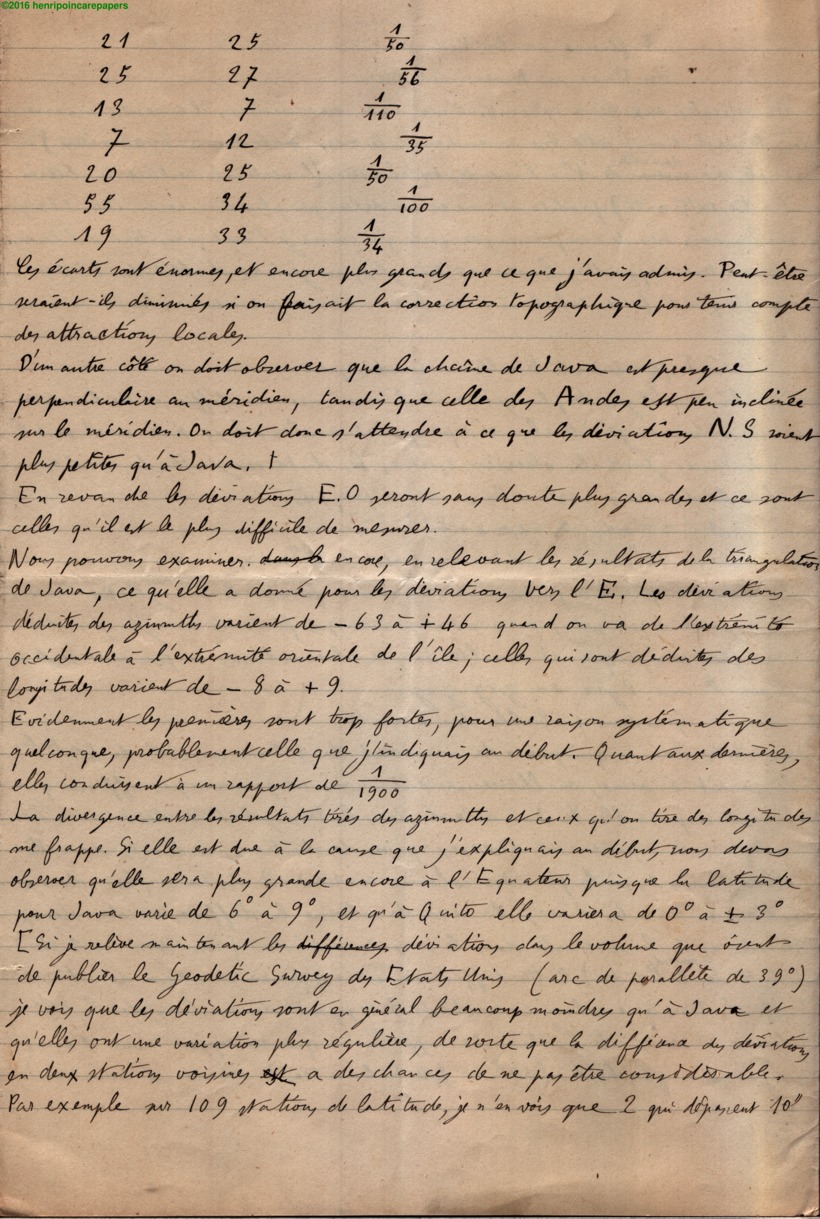 ©2016 henripoincarepapers
21 25 1/50
25 27 1/56
13 7 1/110
7 12 1/35
20 25 1/50
55 34 1/100
19 33 1/34
Les écarts sont énormes, et encore plus grands que ce que j'avais admis. Peut-être
seraient-ils diminués si on faisait la correction topographique pour tenir compte
des attractions locales.
D'un autre côté on doit observer que la chaîne de Java est presque
perpendiculaire au méridien, tandis que celle des Andes est peu inclinée
sur le méridien. On doit donc s'attendre à ce que les déviations N.S soient
plus petites qu'à Java. †
En revanche les déviations E.O seront sans doute plus grandes et ce sont
celles qu'il est le plus difficile de mesurer.
Nous pouvons examiner. dans la encore, en relevant les résultats de la triangulation
de Java, ce qu'elle a donné pour les déviations vers l'E. Les déviations
déduites des azimuths varient de - 63 à + 46 quand on va de l'extrémité
occidentale à l'extrémité orientale de l'île ; celles qui sont déduites des
longitudes varient de - 8 à + 9.
Evidemment les premières sont trop fortes, pour une raison systématique
quelconque, probablement celle que j'indiquais au début. Quant aux dernières,
elles conduisent à un rapport de 1/1900
La divergence entre les résultats tirés des azimuths et ceux qu'on tire des longitudes
me frappe. Si elle est due à la cause que j'expliquais au début, nous devons
observer qu'elle sera plus grande encore à l'Equateur puisque la latitude
pour Java varie de 6° à 9°, et qu'à Quito elle variera de 0° à ± 3°
[Si je relève maintenant les différences déviations dans le volume que vient
de publier le Geodetic Survey des Etats Unis (arc de parallèle de 39°)
je vois que les déviations sont en général beaucoup moindres qu'à Java et
qu'elles ont une variation plus régulière, de sorte que la différence des déviations
en deux stations voisines est a des chances de ne pas être considérable.
Par exemple sur 109 stations de latitude, je n'en vois que 2 qui dépassent 10"